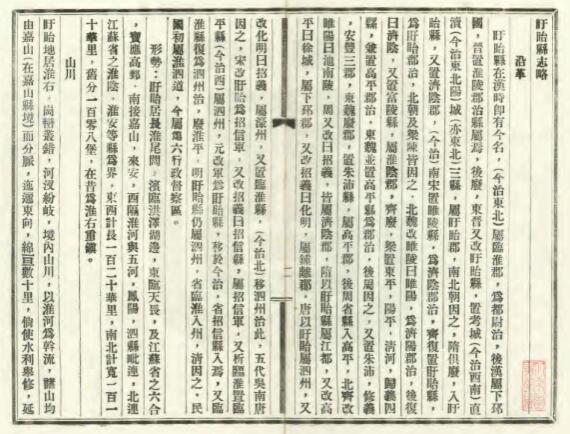 盱眙縣志略
沿革
盱眙縣在漢時卽有今名，（今治東北）屬臨淮郡，爲都尉治，後漢屬下邳
國，晉置淮陵郡治縣屬焉，後廢，東晉又改盱眙縣，置考城（今治西南）直
瀆（今治東北陽）城（亦東北）三縣，屬盱眙郡，南北朝因之，隋俱廢，入盱
眙縣，又置濟陰郡（今治）南宋置睢陵縣，爲濟陰郡治，齊復置盱眙縣，
爲盱眙郡治，北朝及梁陳皆因之，北魏改睢陵曰睢陽，爲濟陽郡治，後復
曰濟陰，又置富陵縣，屬淮陰郡，齊廢，梁置東平，陽平，清河，歸義四
縣，兼置高平郡治，東魏並置高平縣爲郡治，後周因之，又置朱沛，修義
，安豐三郡，東魏廢郡，置朱沛縣，屬高平郡，後周省縣入高平，北齊改
睢陽曰池南陵，周又改曰招義，皆屬濟陰郡，隋以盱眙縣屬江都，又改高
平曰徐城，屬下邳郡，又改招義曰化明，屬鍾離郡，唐以盱眙屬泗州，又
改化明曰招義，屬濠州，又置臨淮縣，（今治北）移泗州治此，五代吳南唐
因之，宋改盱眙爲招信軍，又改招義曰招信縣，屬招信軍，又析臨淮置臨
平縣（今治西）屬泗州，元改軍爲盱眙縣，移於今治，省招信縣入焉，又臨
淮縣復爲泗州治，廢淮平，明盱眙縣仍屬泗州，省臨淮入州，清因之，民
國初屬淮泗道，今屬第六行政督察區。
形勢：盱眙居長淮尾閭，濱臨洪澤湖邊，東臨天長，及江蘇省之六合
，寶應高郵，南接嘉山，來安，西隔淮河與五河，鳳陽，泗縣毗連，北連
江蘇省之淮陰，淮安等縣爲界，東西計長一百二十華里，南北計寬一百一
十華里，舊分一百零八堡，在昔爲淮右重鎮。
山川
盱眙地居淮右，崗巒叢錯，河汊紛岐，境內山川，以淮河爲幹流，諸山均
由嘉山（在嘉山縣境）面分脈，迤邐東向，綿亘數十里，倘使水利舉修，延